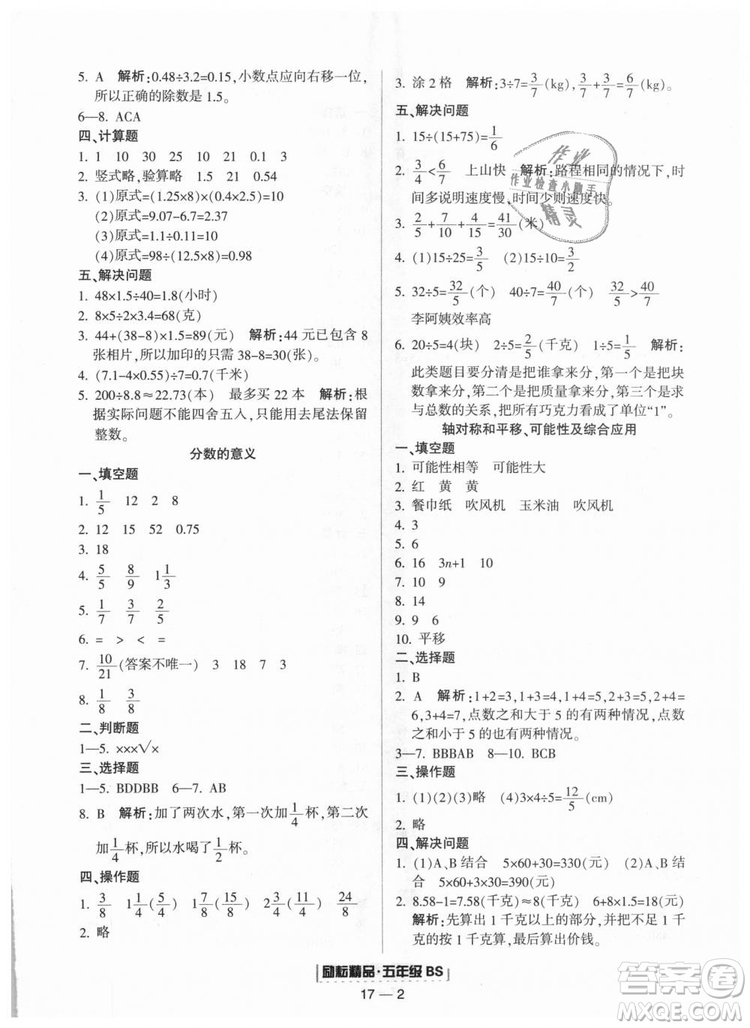 5. A 解析:0.48÷3.2=0.15,小数点应向右移一位,
所以正确的除数是 1.5。
6—8. ACA
四、计算题
1. 1 10 30 25 0.1 0.21
2. 竖式略,验算略
3. (1)原式=(1.25×8)×(0.25×4)=10
(2)原式=9.07-6.7=2.37
(3)原式=1.1÷0.11=10
(4)原式=98÷(12.5×8)=0.98
五、解决问题
1. 48×1.5÷40=1.8(小时)
2. 8×5÷2×3.4=68(克)
3. 44+(38-8)×1.5=89(元) 解析:44 元已包含 8
张相片,所以加印的只需 38-8=30(张)。
4. (7.1-4×0.55)÷0.7=7(千米)
5. 200÷8.8≈22.73(本) 最多买 22 本 解析:根
据实际问题不能四舍五入,只能用去尾法保留
整数。
分数的意义
一、填空题
1. 1/5 12 2 8
2. 12 15 52 0.75
3. 18
4. 5/5 8/9 1 1/4
5. 1/7 3/7 2/5
6. = > < =
7. 10/21(答案不唯一) 3 18 7 3
8. 1/8 3/8
二、判断题
1—5. ×××√×
三、选择题
1—5. BDDBB 6—7. AB
8. B 解析:加了两次水,第一次1/4杯,第二次
1/4杯,所以水喝了1/4+1/4=2/4杯。
四、操作题
1. 3/8 1 1/4(5/4) 1 7/8(15/8) 2 3/4(11/4) 24/8
2. 略
3. 涂 2 格 解析:3÷7=3/7(kg),3/7+3/7=6/7(kg)。
五、解决问题
1. 15÷(15+75)=1/6
2. 3/4<6/7 上山快 解析:路程相同的情况下,时
间多说明速度慢,时间少则速度快。
3. 2/5+2/3+3/10=41/30(米)
4. (1)15÷25=3/5 (2)15÷10=3/2
5. 32÷5=32/5(个) 40÷7=40/7(个) 32/5>40/7
李阿姨效率高
6. 20÷5=4(块) 2÷5=2/5(千克) 1÷5=1/5 解析:
此类题目要分清是把谁拿来分,第一个是把块
数拿来分,第二个是把质量拿来分,第三个是求
与总数的关系,把所有巧克力看成了单位“1”。
轴对称和平移、可能性及综合应用
一、填空题
1. 可能性相等 可能性大
2. 红 黄 黄
3. 餐巾纸 吹风机 玉米油 吹风机
4. 3
5. 5
6. 16 3n+1 16
7. 6 4
8. 14
9. 6 9
10. 平移
二、选择题
1. B
2. A 解析:1+2=3,1+3=4,2+3=5,1+4=5,2+4=
6,3+4=7,点数之和大于 5 的有两种情况,点数
之和小于 5 的有两种情况。
3—7. BBBAB 8—10. BCB
三、操作题
1. (1)(2)(3)略 (4)3×4÷5=12/5(cm)
2. 略
四、解决问题
1. (1)A、B 结合 5×60+30=330(元)
(2)A、B 结合 6×60+30=390(元)
2. 8.58-1=7.58(千克)≈8(千克) 6+8×1.5=18(元)
解析:先算出 1 千克以上的部分,并将不足 1 千
克的按 1 千克算,最后算出总价钱。
作业
作业检查小助手
精灵
励耘精品·五年级 BS
17—2
答案卷